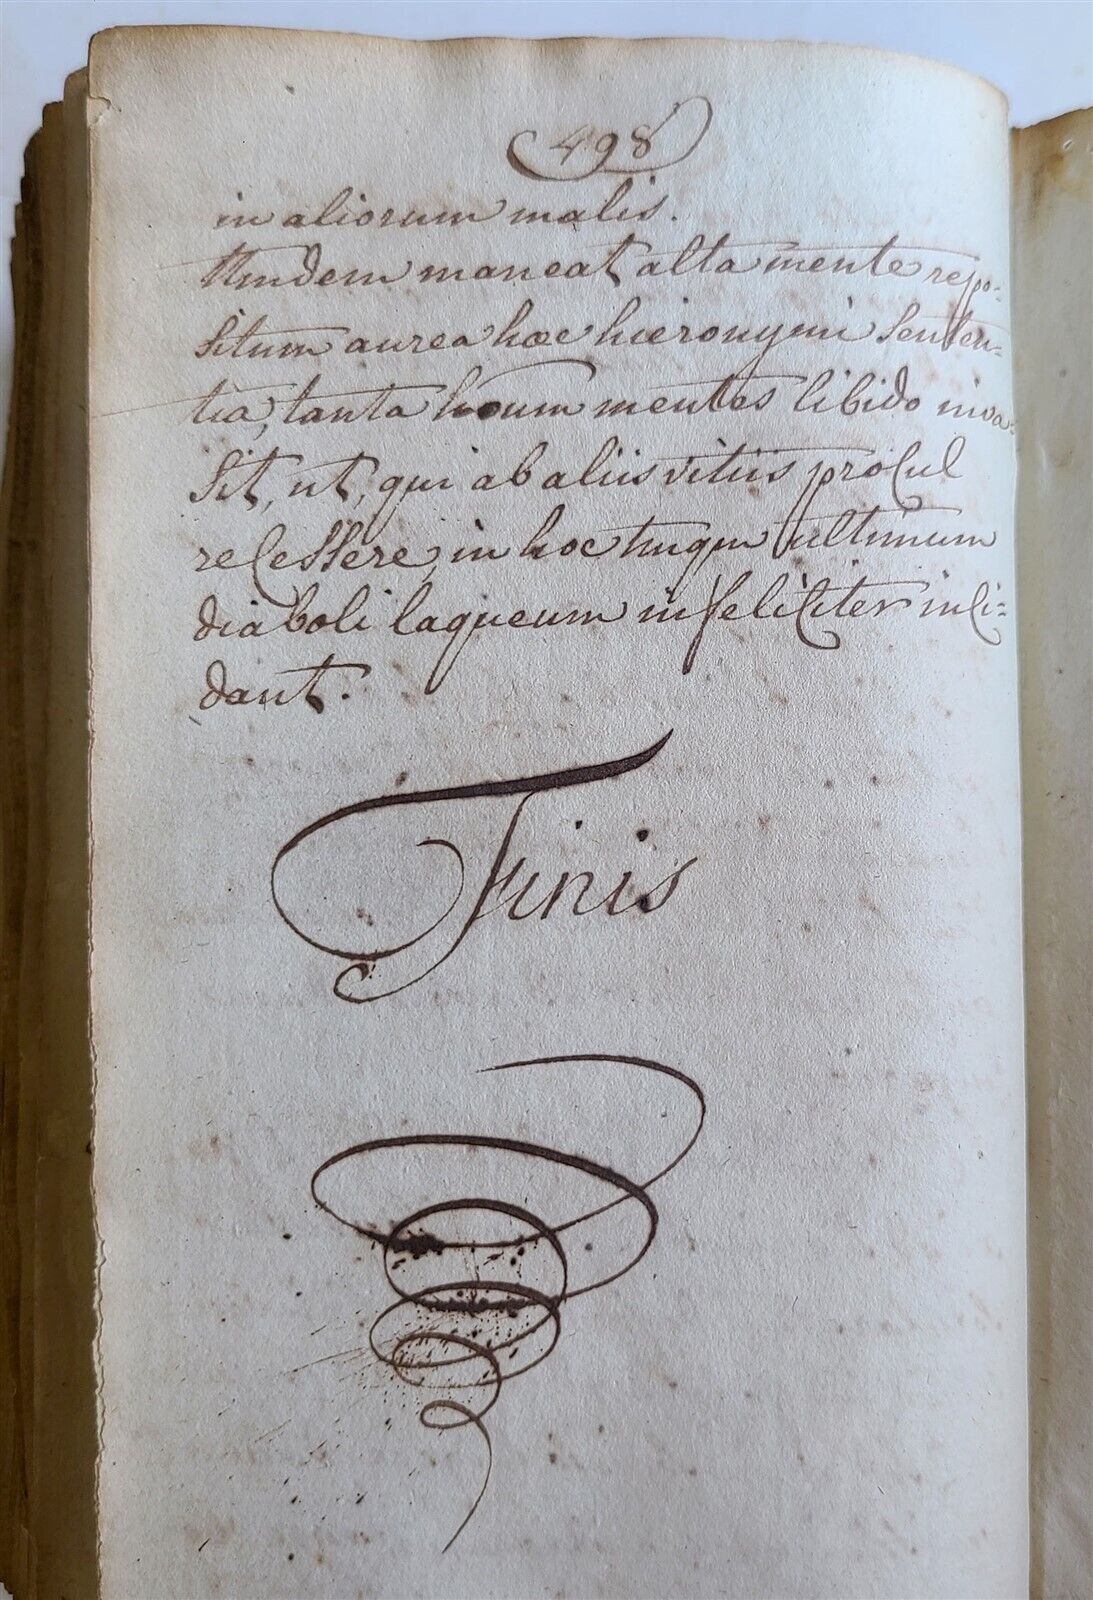 498
in aliorum malis.
Tandem maneat alta mente repo-
situm aurea hæc hieronymi senten-
tia, tanta houm mentes libido inva-
sit, ut, qui ab aliis vitiis procul
recessere, in hoc tmqm ultimum
diaboli laqueum infeliciter inci-
dant.
Finis